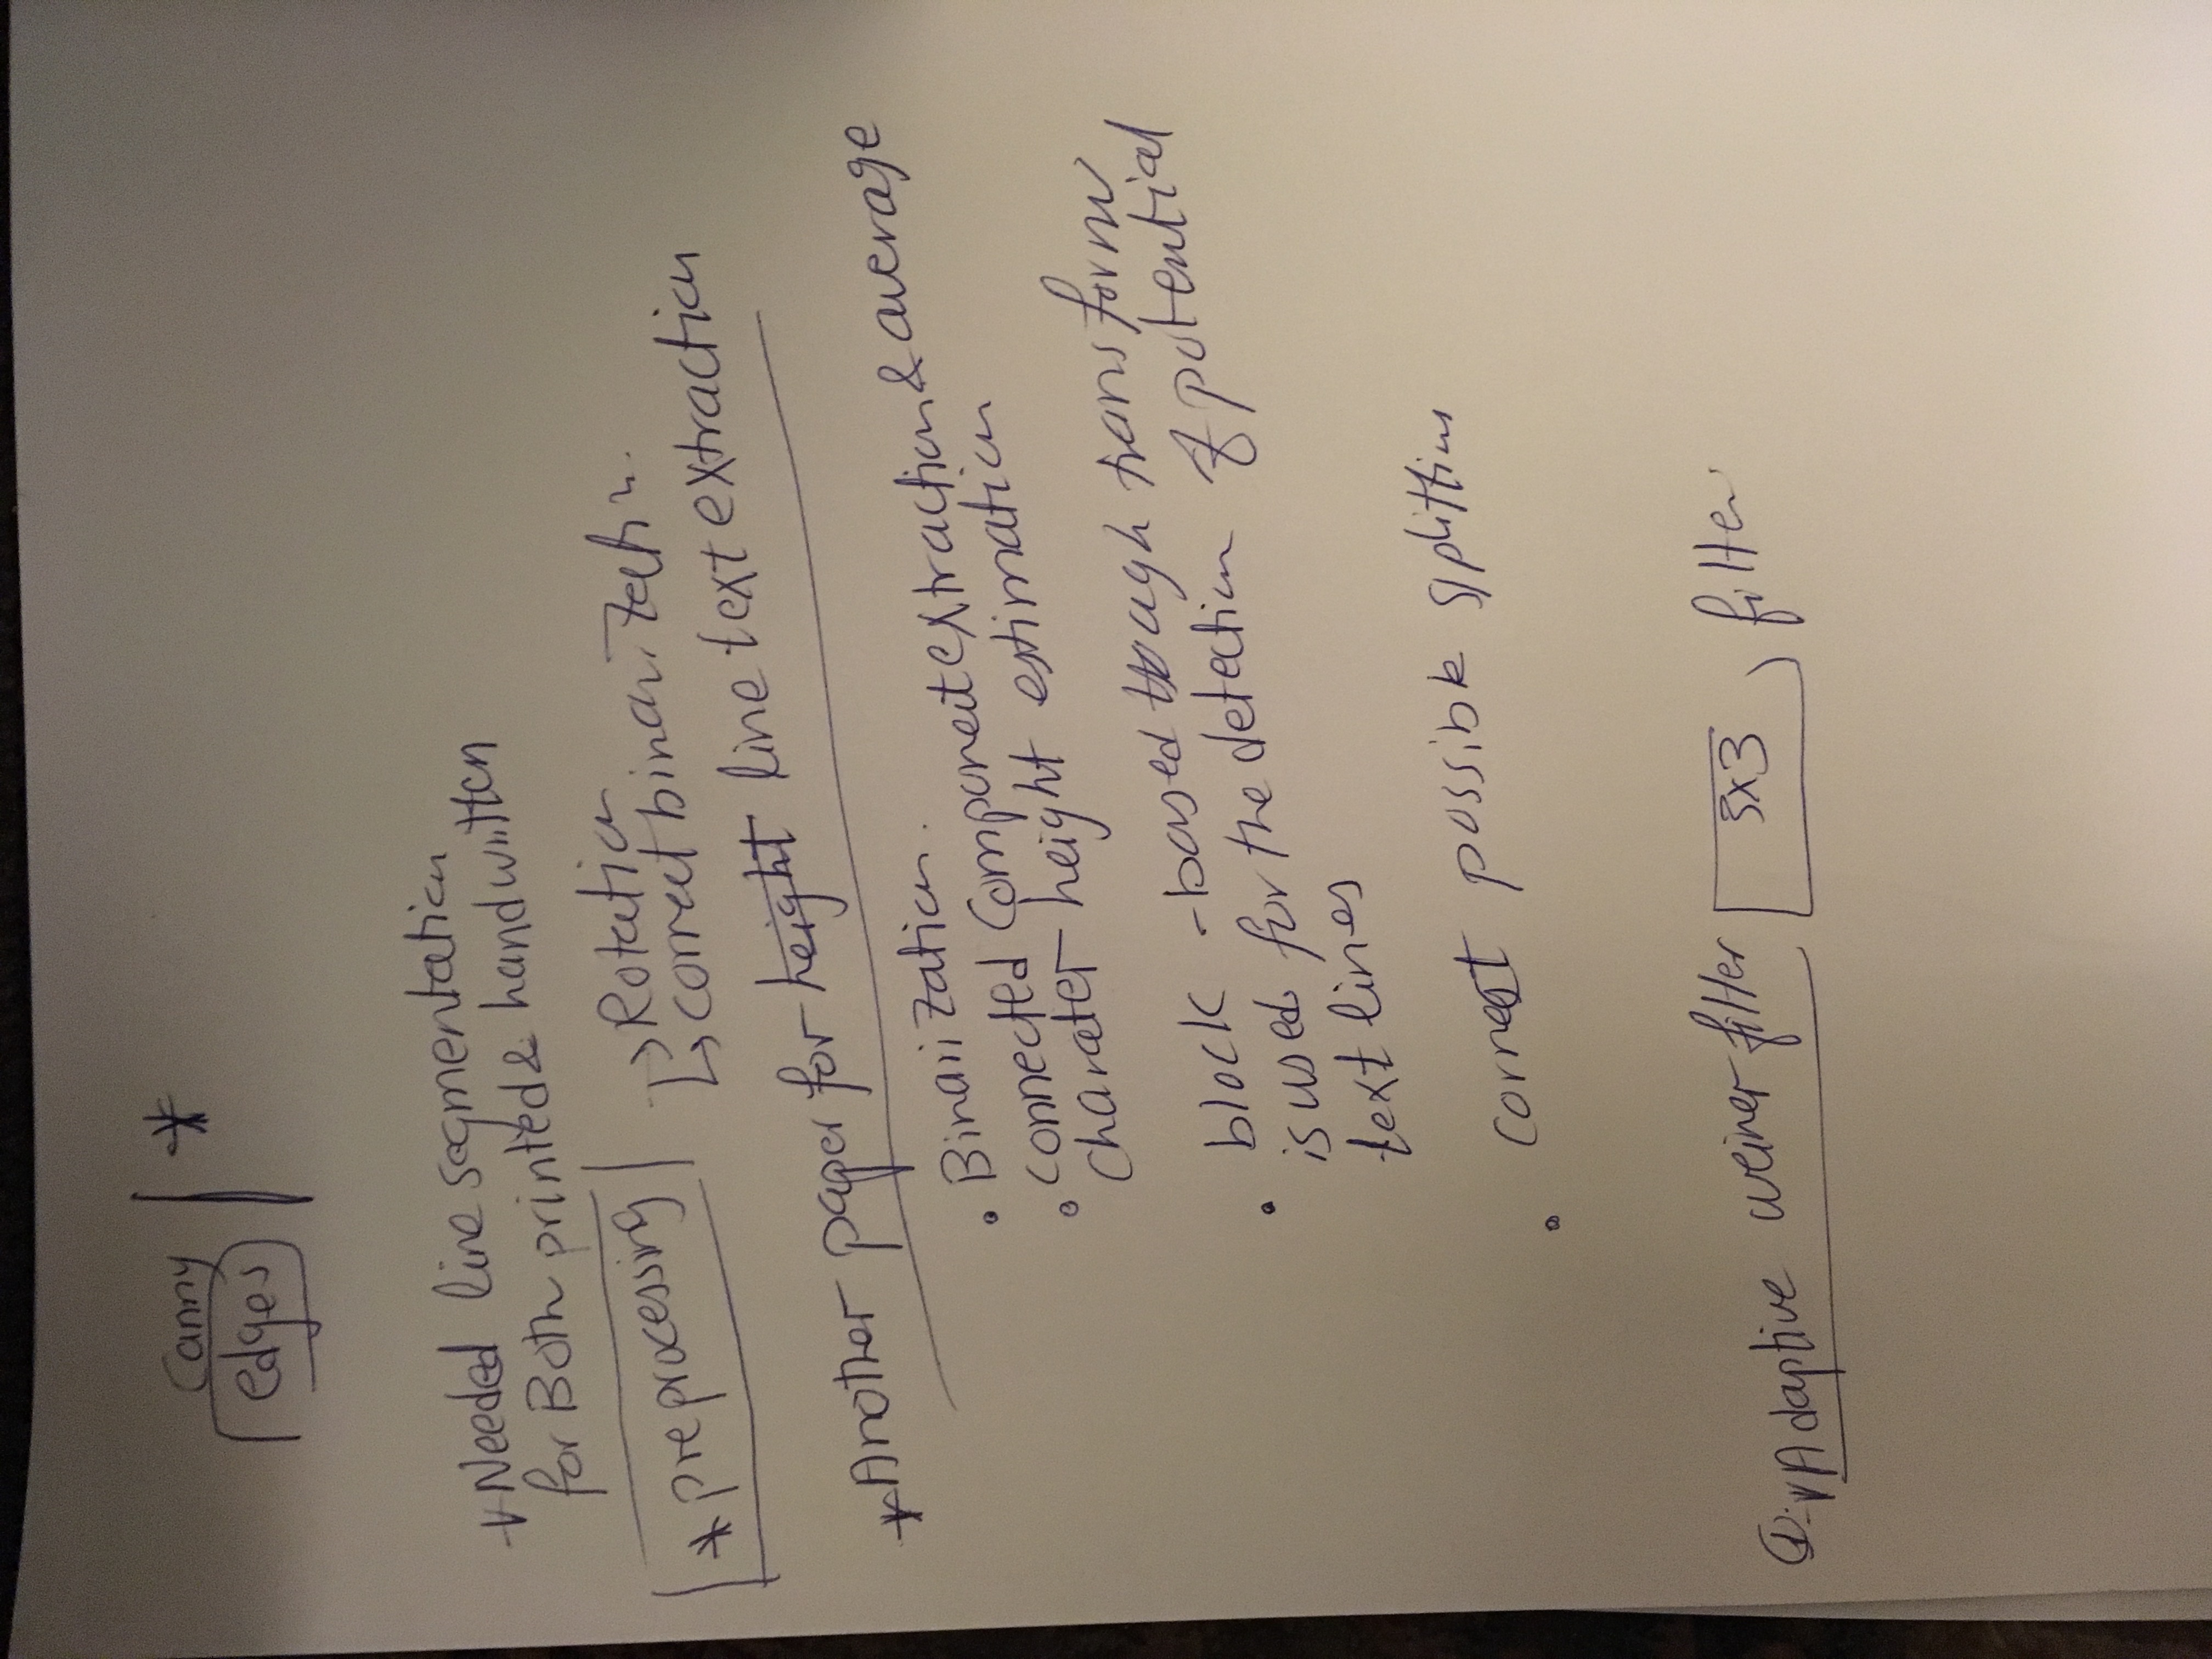 Canny | *
edges
* Needed line segmentation
for Both printed & handwritten
* preprocessing
→ Rotation
↳ correct binarization.
* Another paper for height line text extraction
• Binarization.
• connected component extraction & average
charater height estimation
• block-based Hough transform
is used for the detection of potential
text lines
• correct possible splitting
①: * Adaptive weiner filter 3x3 filter